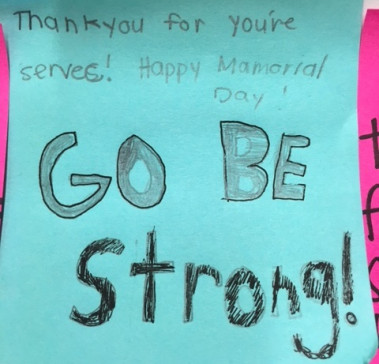 Thankyou for you're
serves! Happy Mamorial
Day!
GO BE
Strong!